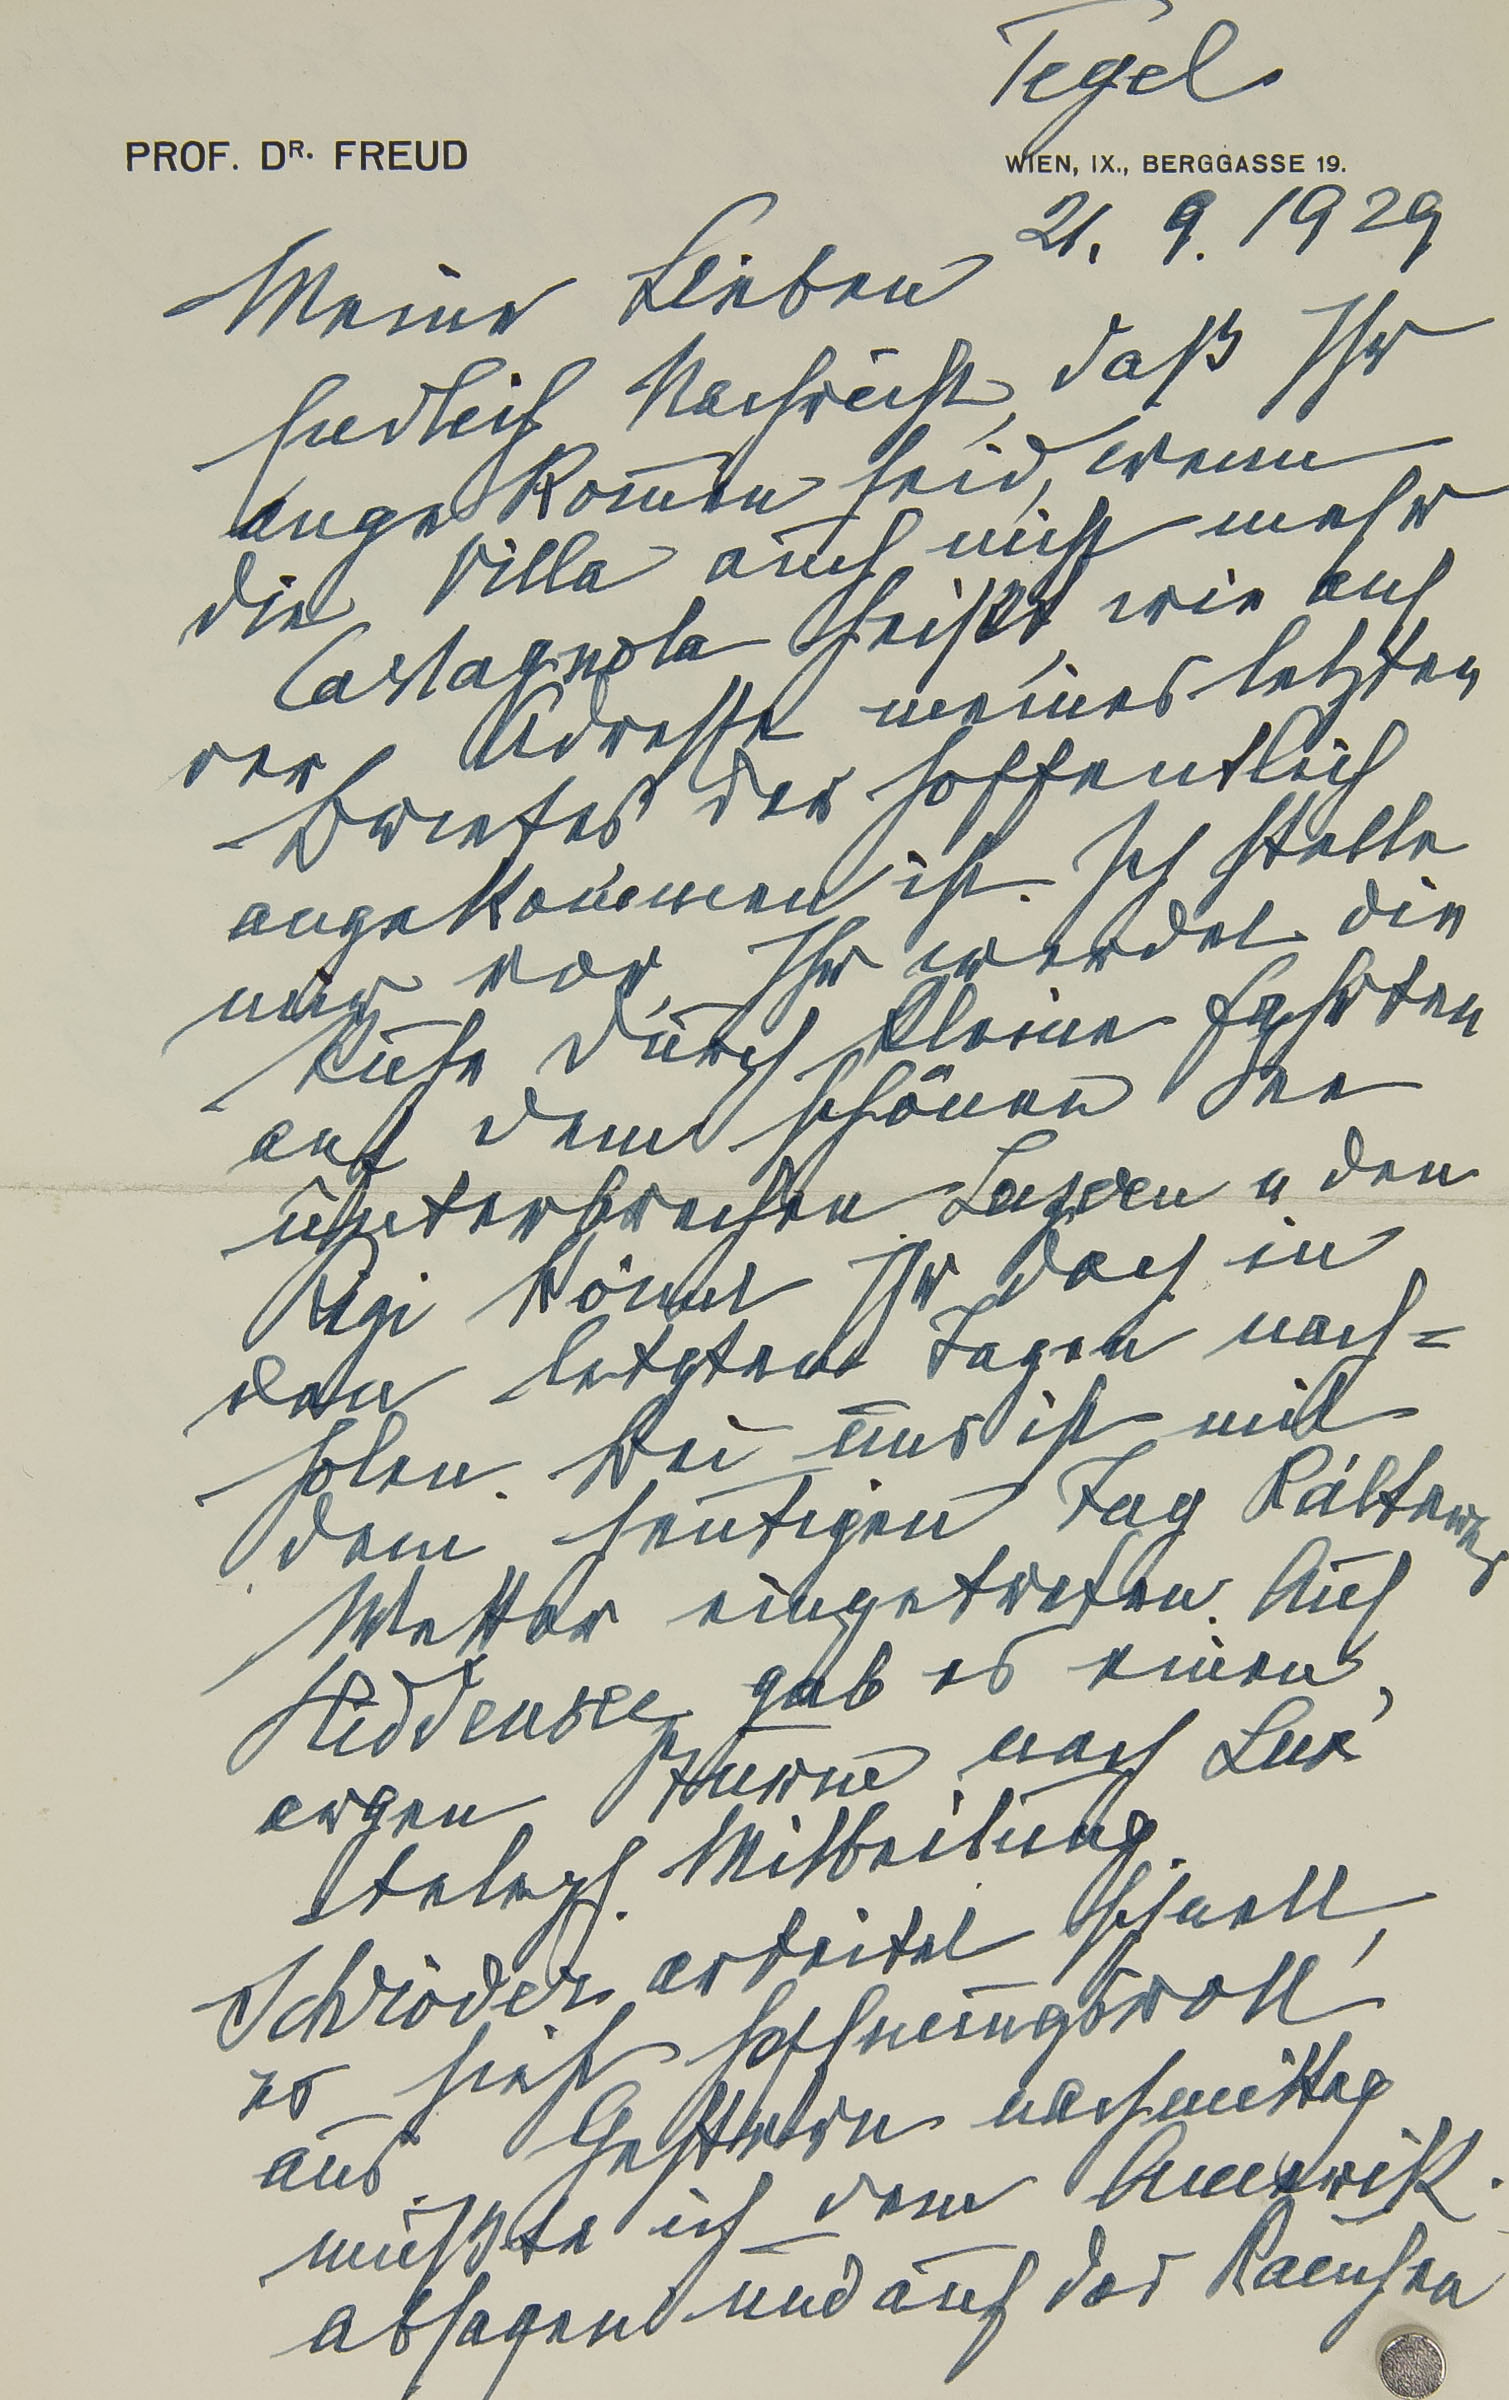 Tegel
PROF. DR. FREUD
WIEN, IX., BERGGASSE 19.
21. 9. 1929
Meine Lieben
Endlich Nachricht, daß Ihr
angekommen seid, wenn
die Villa auch nicht mehr
Castagnola heißt, wie auf
der Adresse meines letzten
Briefes der hoffentlich
angekommen ist. Ich stelle
mir vor, Ihr werdet die
Ruhe durch kleine Fahrten
auf dem schönen See
unterbrechen. Luzern u den
Rigi könnt Ihr doch in
den letzten Tagen nach=
holen. Bei uns ist mit
dem heutigen Tag kälteres
Wetter eingetreten. Auf
Hiddensee gab es einen
argen Sturm nach Lux'
teleph. Mitteilung.
Schröder arbeitet schnell,
es sieht hoffnungsvoll
aus. Gestern nachmittag
mußte ich dem Amerik.
absagen und auch das Rauchen